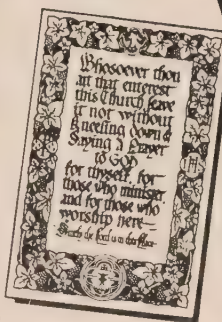 Whosoever thou
art that enterest
this Church leave
it not without
kneeling down &
Saying a Prayer
to GOD
for thyself, for
those who minister,
and for those who
worship here
Surely the Lord is in this place